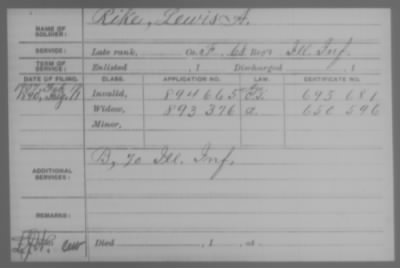 NAME OF SOLDIER: Rike, Lewis A.
SERVICE: Late rank, Co. F, 68 Reg't Ill. Inf.
TERM OF SERVICE: Enlisted , 1 Discharged , 1
DATE OF FILING. CLASS. APPLICATION NO. LAW. CERTIFICATE NO.
Invalid, 894665 693 681
1890, Aug. Widow, 893 376 a. 650 596
Minor,
ADDITIONAL SERVICES: B, 70 Ill. Inf.
REMARKS:
Died , 1 , at